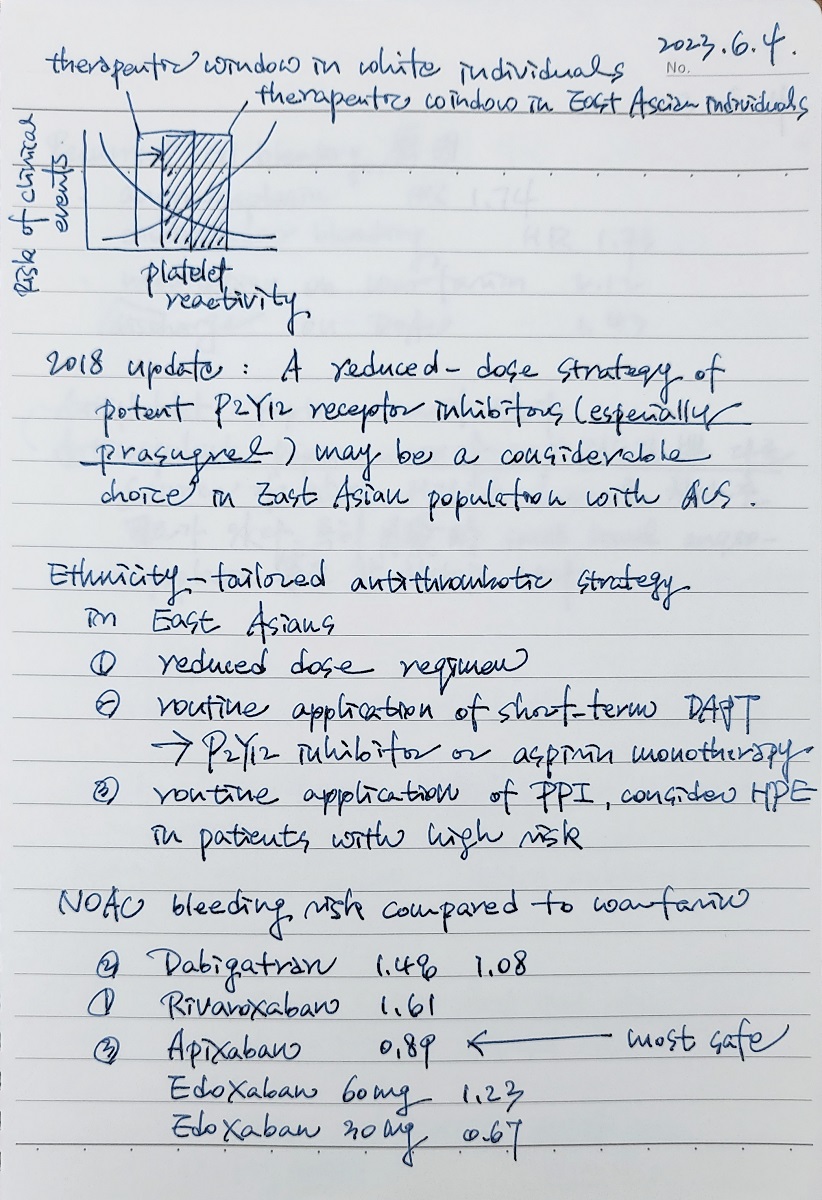 2023.6.4.
No.
therapeutic window in white individuals
therapeutic window in East Ascian individuals
Risk of clinical
events
platelet
reactivity
2018 update : A reduced-dose strategy of
potent P2Y12 receptor inhibitors (especially
prasugrel) may be a considerable
choice in East Asian population with ACS.
Ethnicity-tailored antithrombotic strategy
in East Asians
① reduced dose regimen
② routine application of short-term DAPT
→ P2Y12 inhibitor or aspirin monotherapy
③ routine application of PPI, consider HPE
in patients with high risk
NOAC bleeding risk compared to warfarin
② Dabigatran 1.48 1.08
① Rivaroxaban 1.61
③ Apixaban 0.89 ← most safe
Edoxaban 60mg 1.23
Edoxaban 30mg 0.67